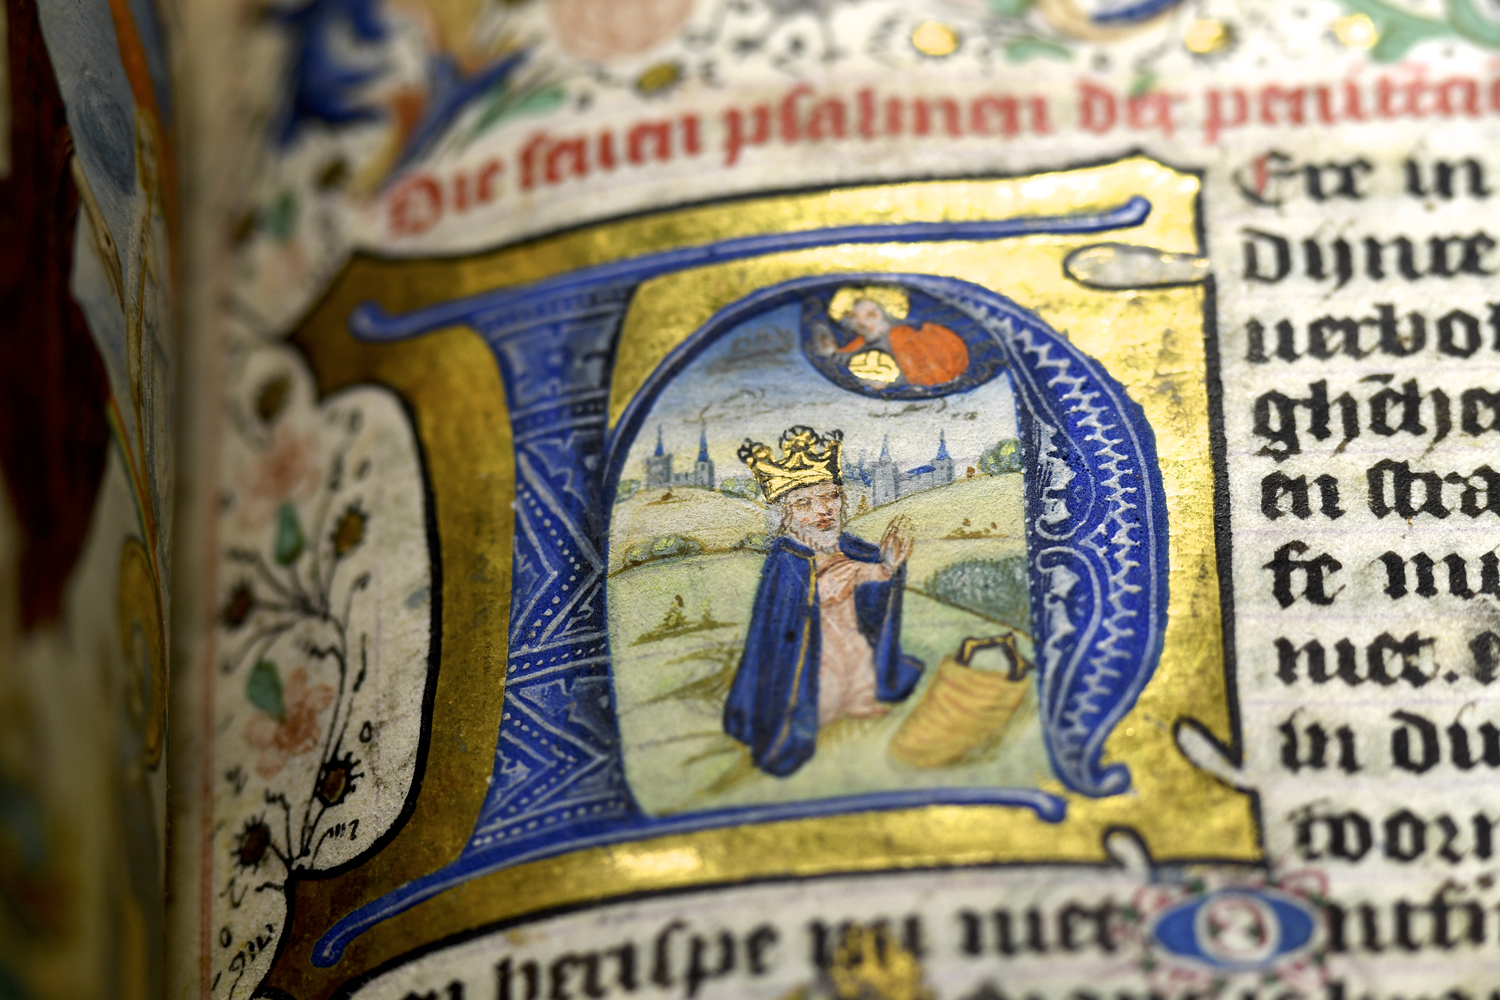 Die seuen psalmen der penitēci
Ere in
dijnre
uerbol
ghēthe
en stra
fe mi
niet. e
in di
toorn
en berispe mi niet Ontfi